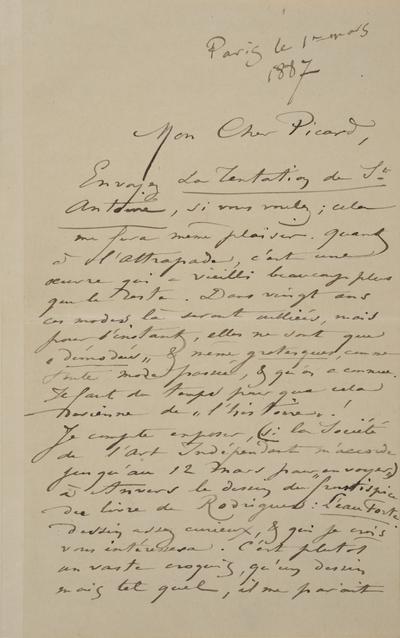 Paris le 1er mars
1887
Mon Cher Picard,
Envoyez La Tentation de St
Antoine, si vous voulez ; cela
me fera même plaisir. Quant
à l'Attrapade, c'est une
œuvre qui a vieilli beaucoup plus
que le reste. Dans vingt ans
ces modes là seront oubliées, mais
pour l'instant, elles ne sont que
« démodées » & même grotesques, comme
toute mode passée, & qu'on a connue.
Il faut du temps pour que cela
devienne de « l'histoire » !
Je compte exposer, (si la Société
de l'Art Indépendant m'accorde
jusqu'au 12 Mars pour envoyer)
à Anvers le dessin du frontispice
du livre de Rodrigues : L'eau forte
dessin assez curieux, & qui je crois
vous intéressera. C'est plutôt
un vaste croquis, qu'un dessin
mais tel quel, il me paraît